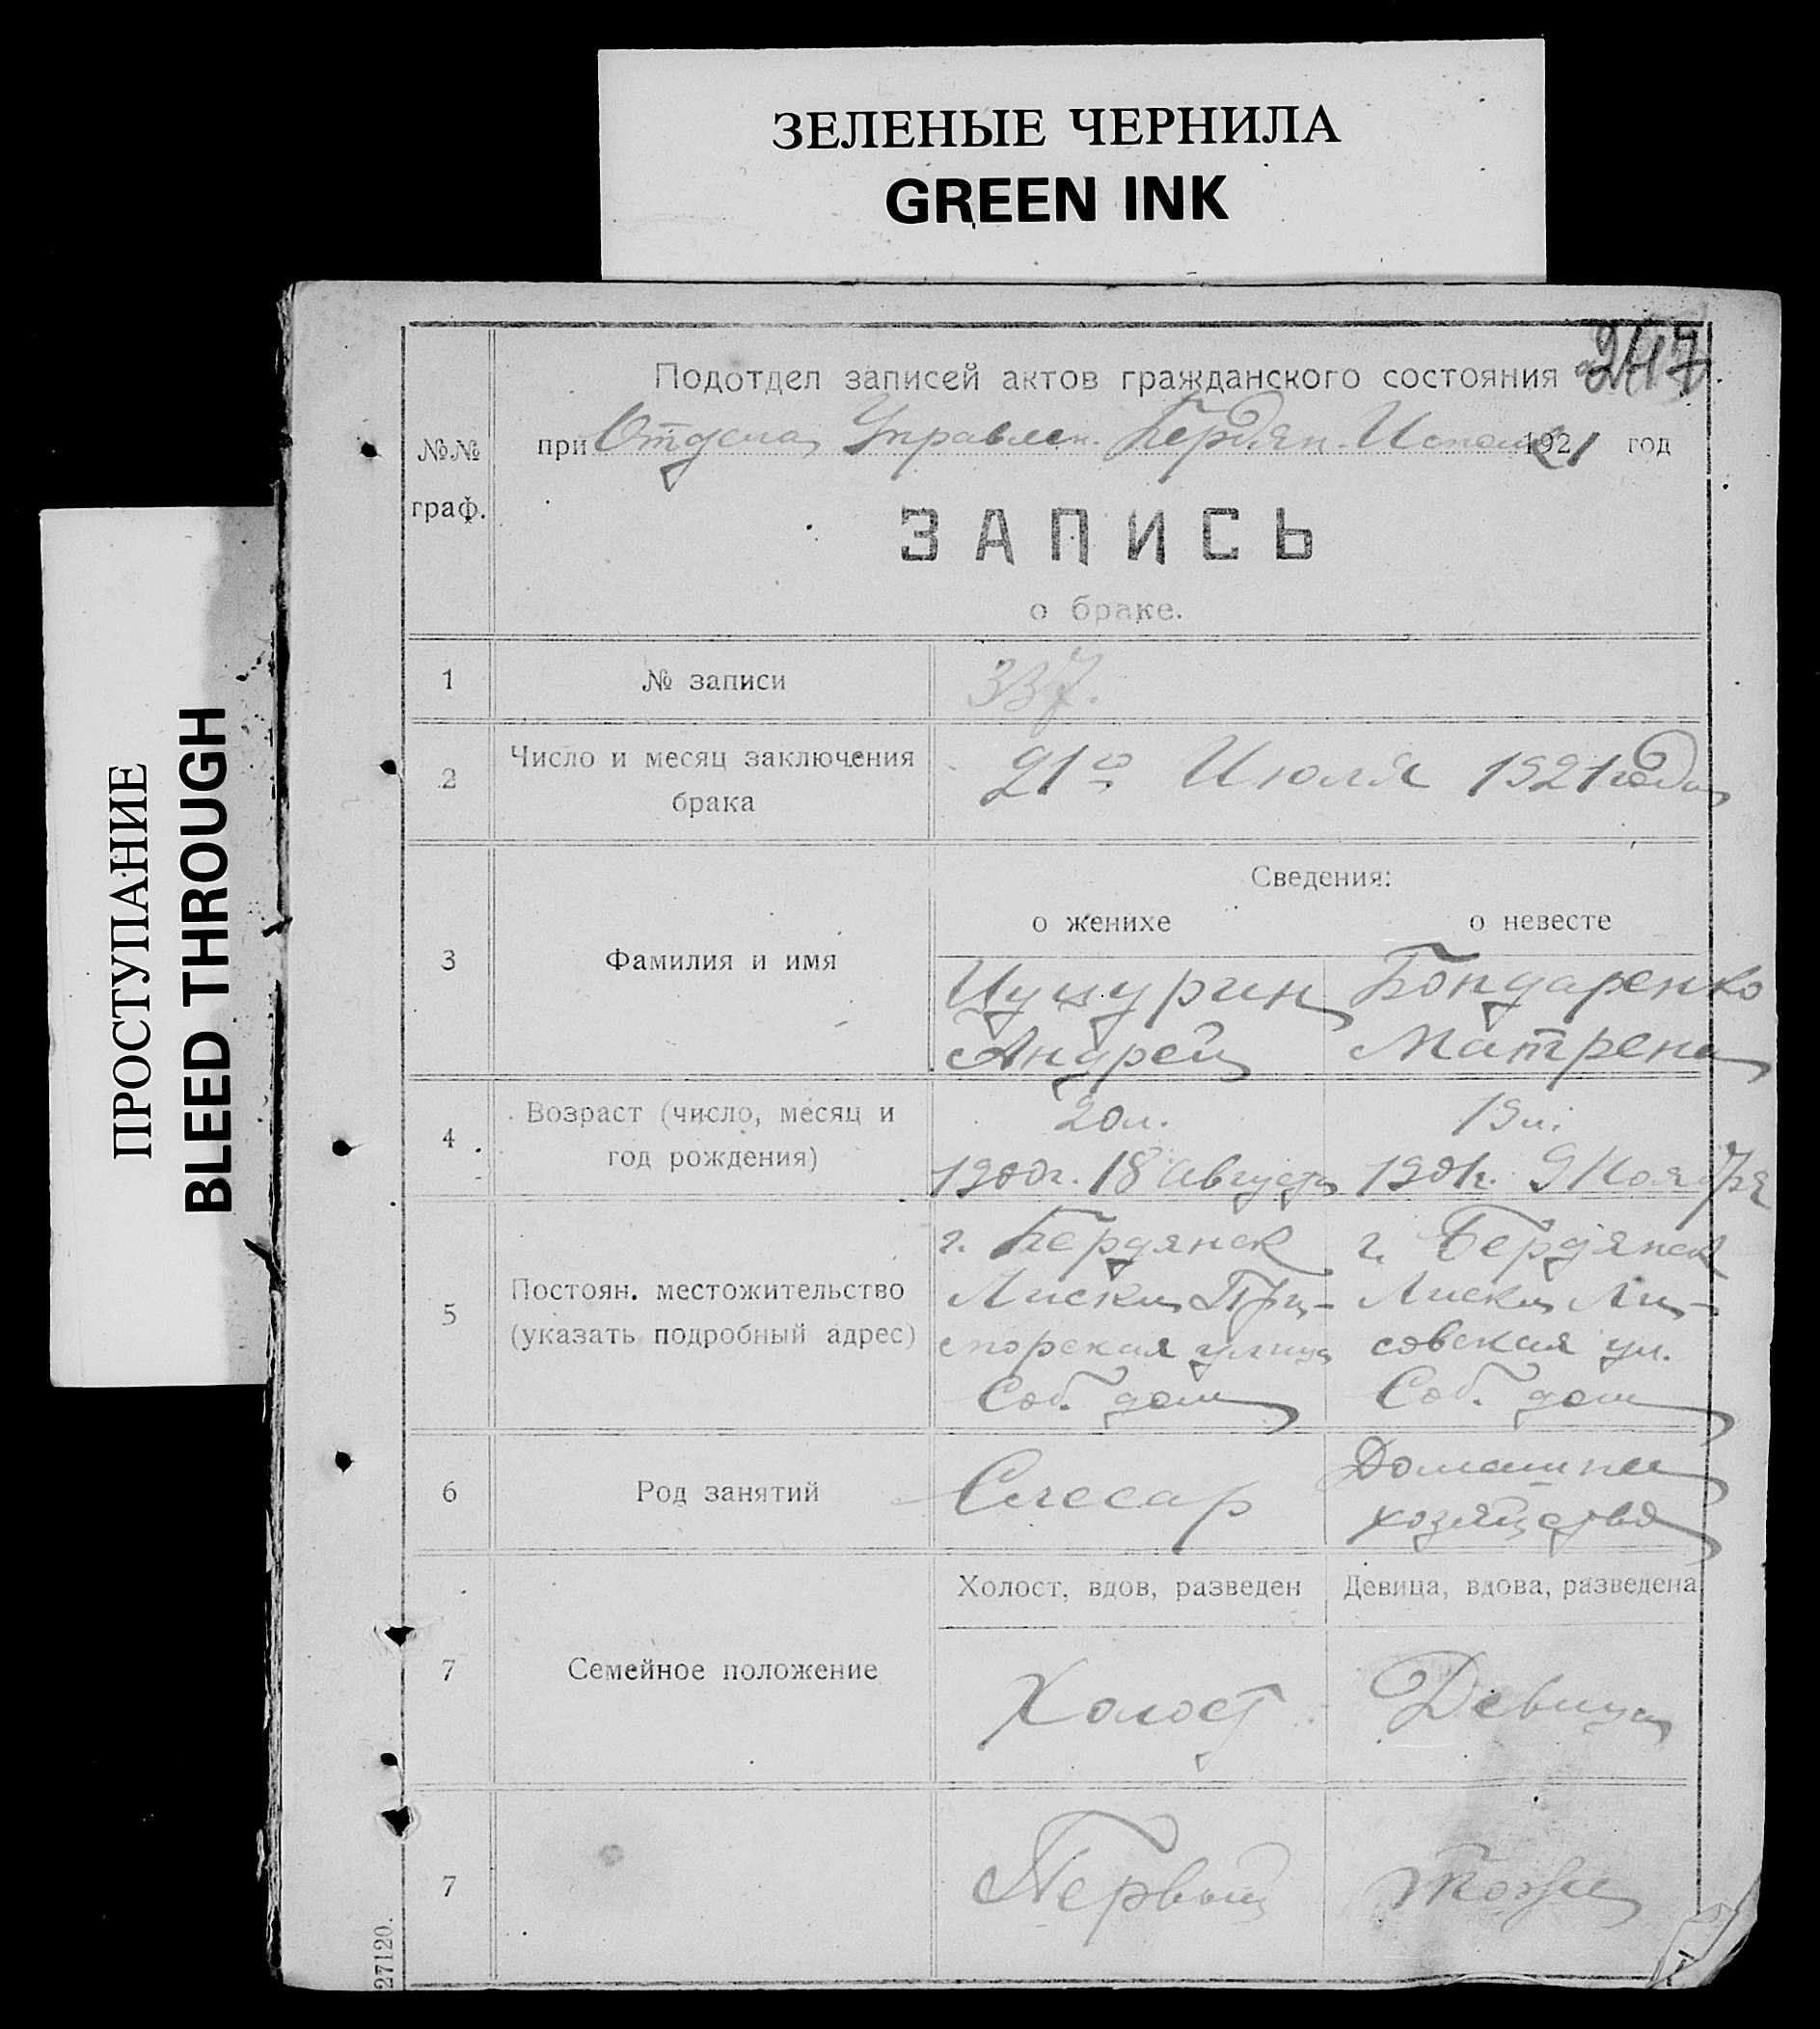 ЗЕЛЕНЫЕ ЧЕРНИЛА
GREEN INK
ПРОСТУПАНИЕ
BLEED THROUGH
247
Подотдел записей актов гражданского состояния
№№ граф.
при Отдела Управлен. Бердян. Исполк 1921 год
ЗАПИСЬ
о браке.
1 № записи 337.
2 Число и месяц заключения брака 21го Июля 1921 года
Сведения:
о женихе о невесте
3 Фамилия и имя
Цуцурин Бондаренко
Андрей Матрена
4 Возраст (число, месяц и год рождения)
20 л. 19 л.
1900г. 18 Августа 1901г. 9 Ноября
5 Постоян. местожительство (указать подробный адрес)
г. Бердянск г. Бердянск
Лиски Лиски Ли-
улица совская ул.
Соб. дом Соб. дом
6 Род занятий
Слесар Домашнее
хозяйство
7 Семейное положение
Холост, вдов, разведен Девица, вдова, разведена
Холост Девица
7 Первый Тоже
27120.